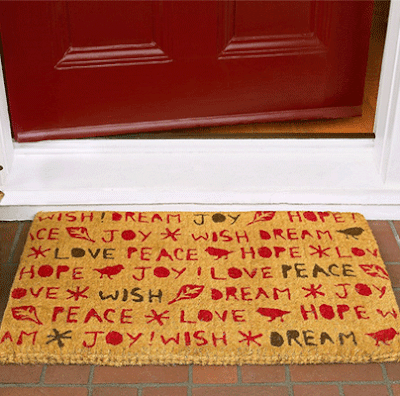 WISH! DREAM JOY HOPE
EACE JOY * WISH DREAM * HO
* LOVE PEACE HOPE * LOV
HOPE JOY! LOVE PEACE
OVE * WISH DREAM * JOY
* PEACE * LOVE HOPE
EAM * JOY! WISH * DREAM